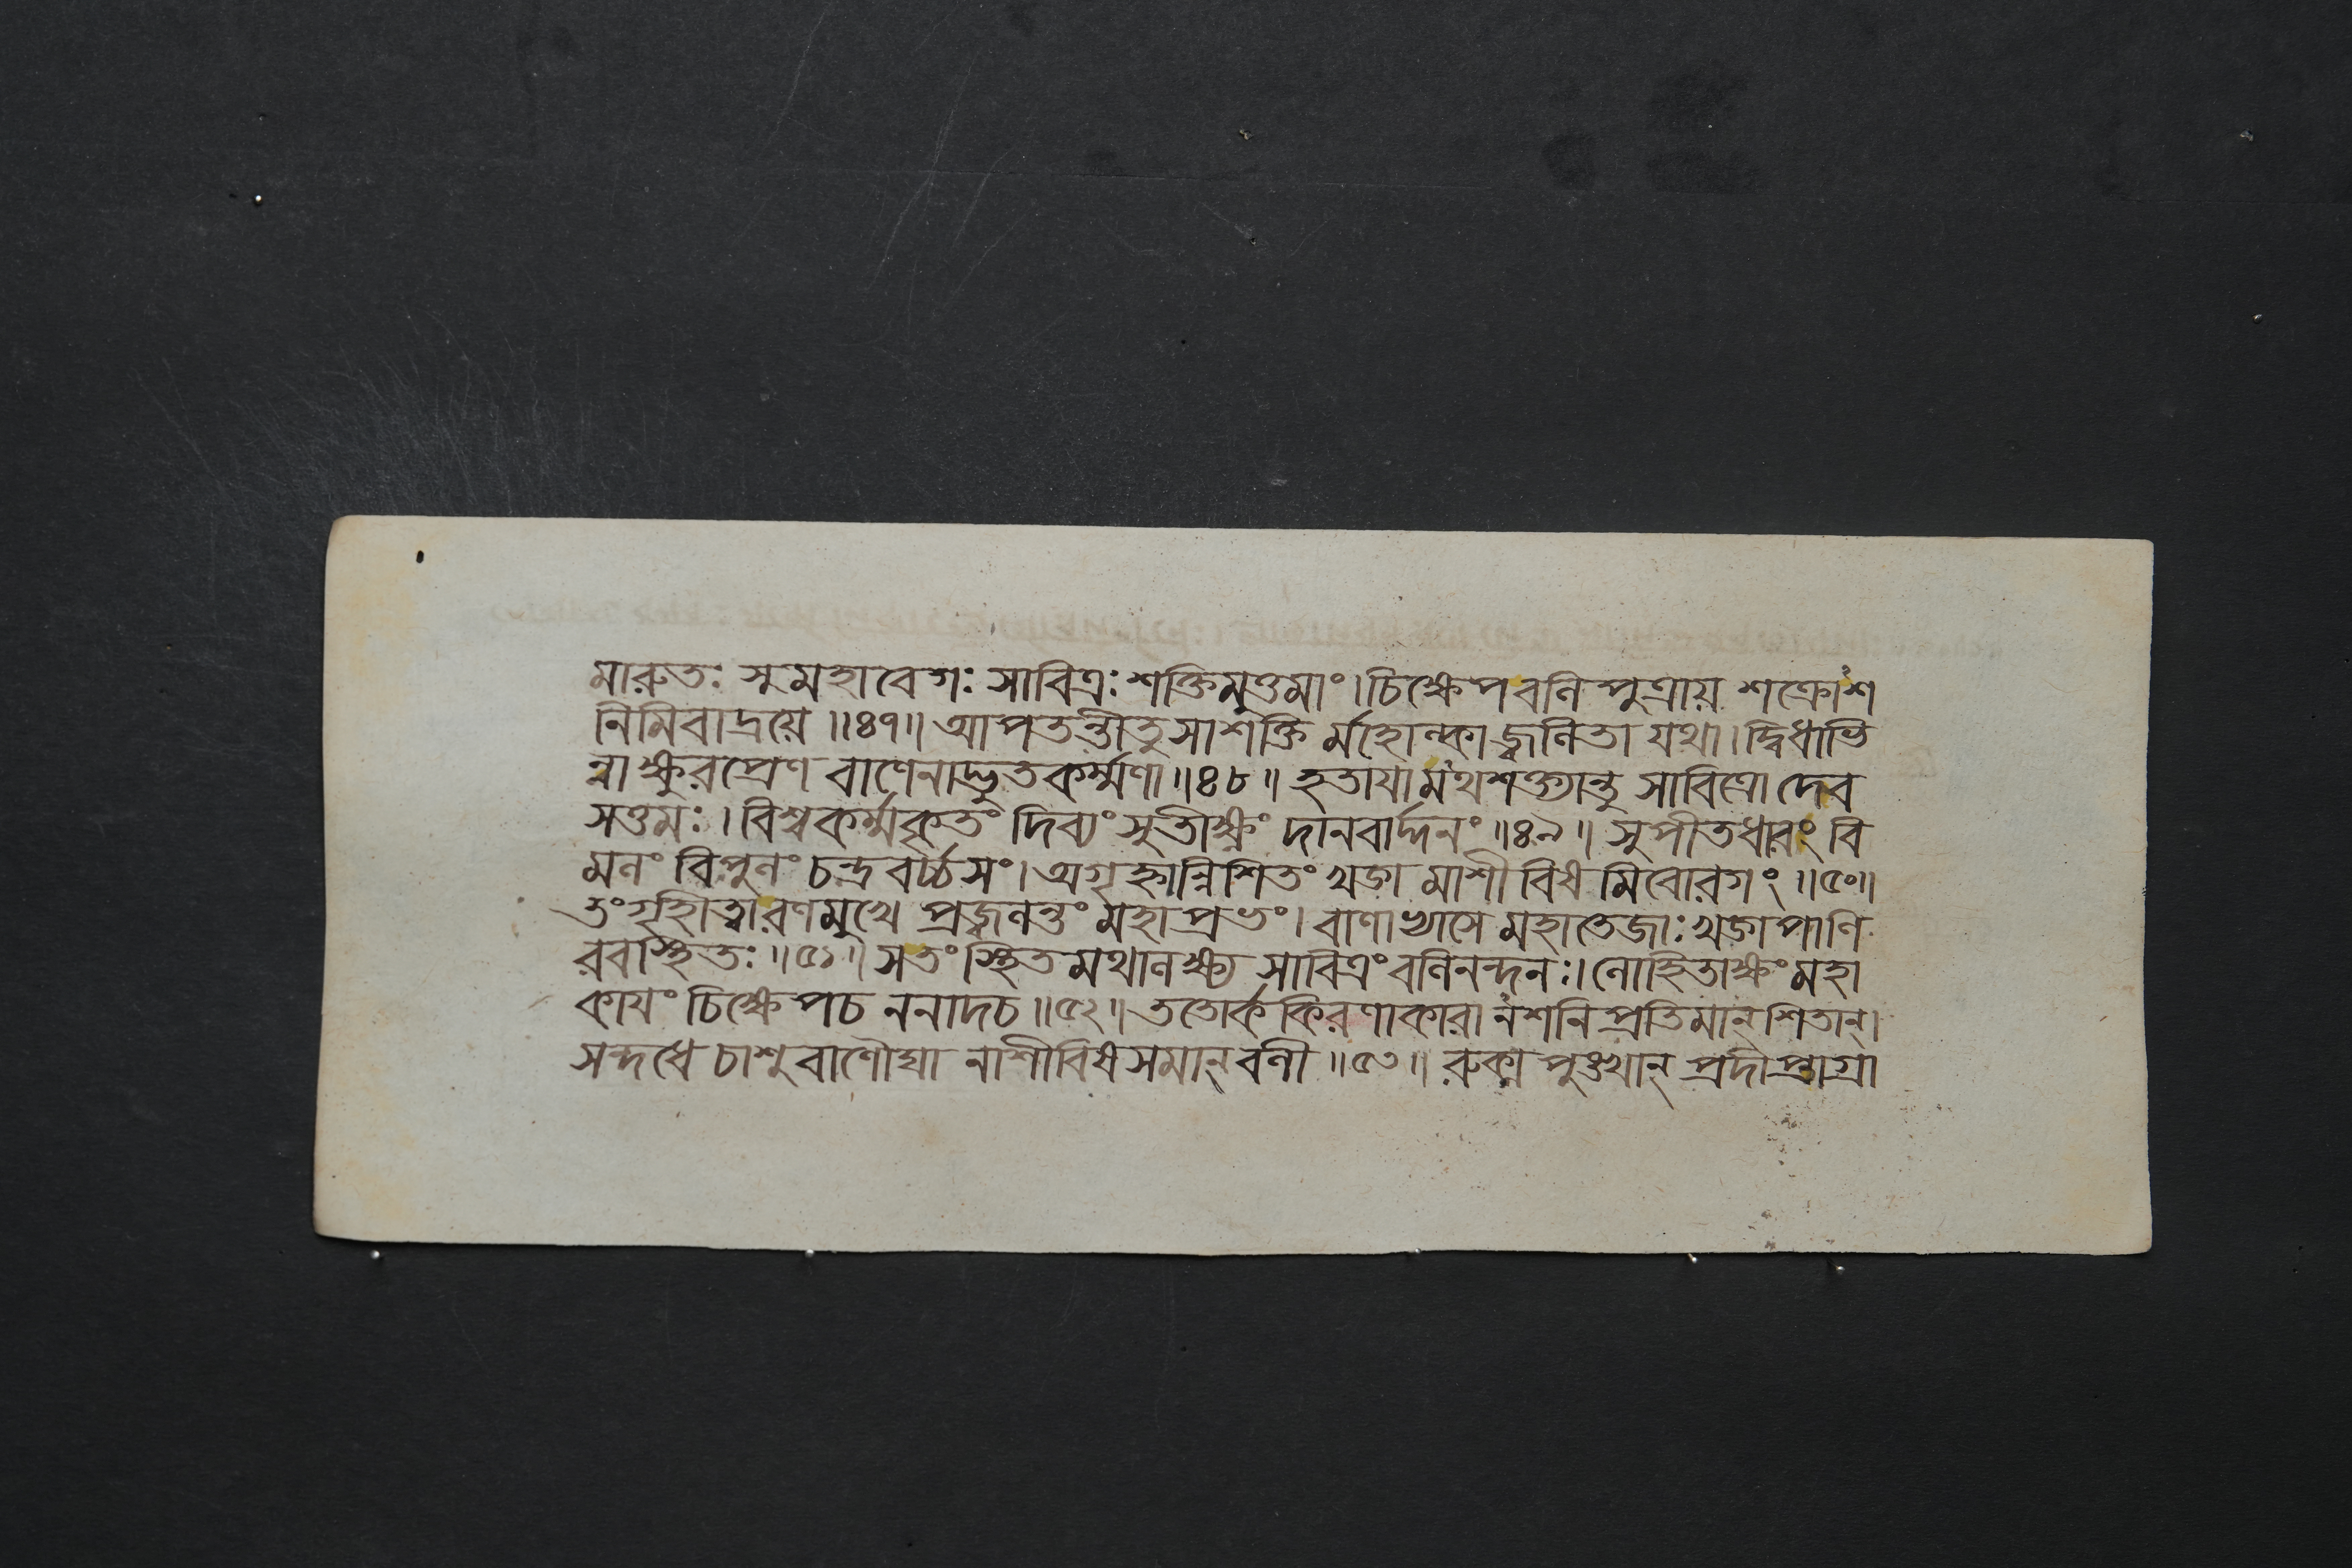 মারুতঃ সুমহাবেগঃ সাবিত্রঃ শক্তিমুত্তমাং।চিক্ষেপবলি পুত্রায় শক্রোশ
নিমিবাদ্রয়ে॥৪৭॥আপতন্তীতুসাশক্তি র্মহোল্কাজ্বলিতা যথা।দ্বিধাভি
ন্নাক্ষুরপ্রেণ বাণেনাদ্ভুতকর্ম্মণা॥৪৮॥ হৃতাযামথশক্ত্যান্তু সাবিত্রো দেব
সত্তমঃ।বিশ্বকর্ম্মকৃতং দিব্যং সুতীক্ষ্ণং দানবার্দ্দনং॥৪৯॥ সুপীতধারং বি
মলং বিপুলং চন্দ্রবর্চ্চসং।অগৃহ্নান্নিশিতং খড্গমাশীবিষমিবোরগং॥৫০॥
তংগৃহীত্বারণমুখে প্রজ্বলন্তং মহাপ্রভং।বাণাভ্যাসে মহাতেজাঃখড্গপাণি
রবস্থিতঃ॥৫১॥সতংস্থিতমথালক্ষ্য সাবিত্রং বলিনন্দনঃ।লোহিতাক্ষং মহা
কাযং চিক্ষেপচ ননাদচ॥৫২॥ততোর্ককিরণাকারানশনিপ্রতিমান্শিতান্।
সন্দধে চাশুবাণৌঘা নাশীবিষসমান্বলী॥৫৩॥ রুক্মপুঙ্খান্ প্রদীপ্তাগ্রা